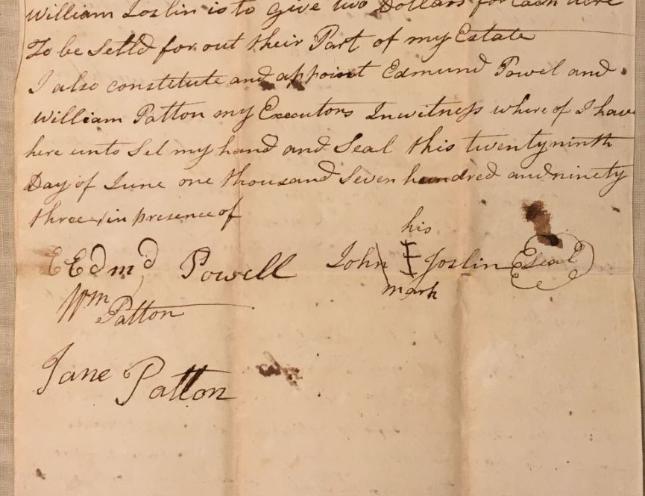 William Joslin is to Give two Dollars for Each acre
To be Settd for out their Part of my Estate
I also constitute and appoint Edmund Powel and
William Patton my Executors In witness where of I have
here unto Set my hand and Seal this twenty ninth
Day of June one thousand Seven hundred and ninety
three in presence of
his
Edmd Powell John Joslin Seal
mark
Wm Patton
Jane Patton